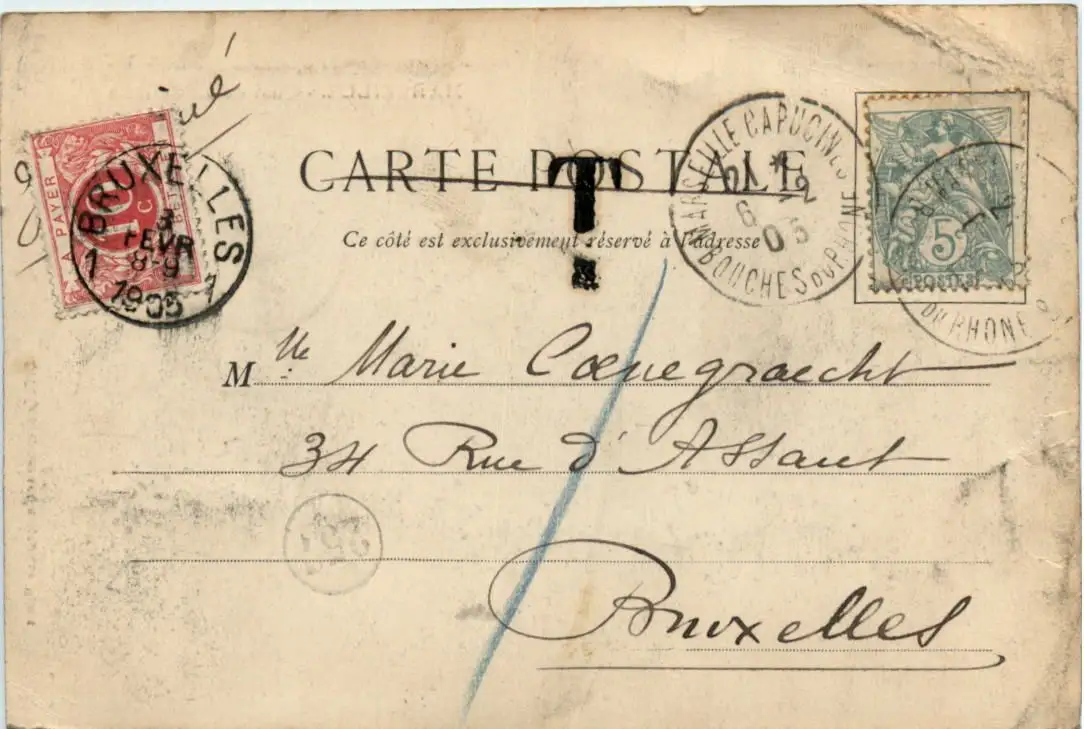 CARTE POSTALE
T
Ce côté est exclusivement réservé à l'adresse
A PAYER
10 C
BRUXELLES
3
FEVR
8-9
1905
1 1
MARSEILLE CAPUCINES
BOUCHES DU RHONE
5
POSTES
DU RHONE
Mlle Marie Coenegracht
34 Rue d'Assaut
Bruxelles